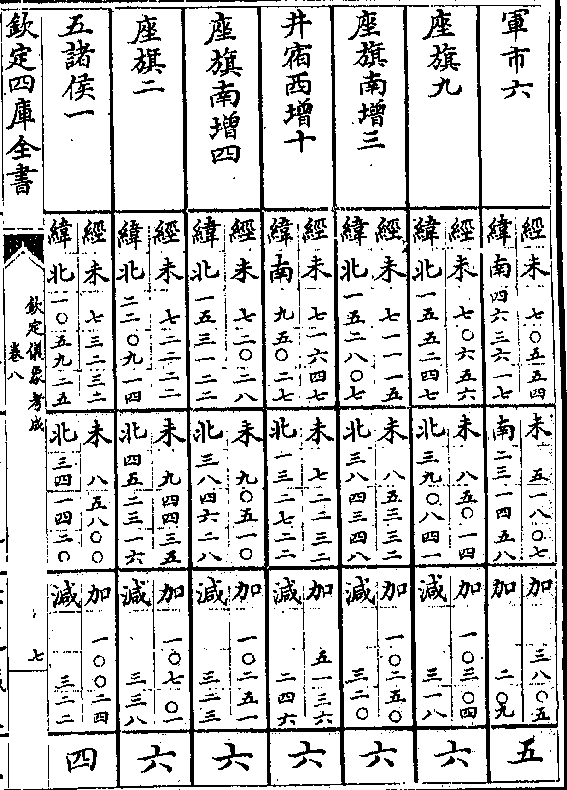 軍市六
經未七〇五五四
緯南四六三六一七
未五一八〇七
南二三一四五八
加三八〇五
加二〇九
五
座旗九
經未七〇六五六
緯北一五五二四七
未八五〇一四
北三九〇八四一
加一〇三〇四
減三一八
六
座旗南增三
經未七一一一五
緯北一五二八〇七
未八五三三二
北三八四三四八
加一〇二五〇
減三二〇
六
井宿西增十
經未七一六四七
緯南九五〇二七
未七二二三二
北一三二七二二
加五一三六
減二四六
六
座旗南增四
經未七二〇二八
緯北一五三一二二
未九〇五一〇
北三八四六二八
加一〇二五一
減三二三
六
座旗二
經未七二二二二
緯北二二〇九一四
未九四四三五
北四五二三一六
加一〇七〇一
減三三八
六
五諸侯一
經未七三二三二
緯北一〇五九二五
未八五八〇〇
北三四一四二〇
加一〇〇二四
減三二二
四
欽定四庫全書
欽定儀象考成
卷八
七